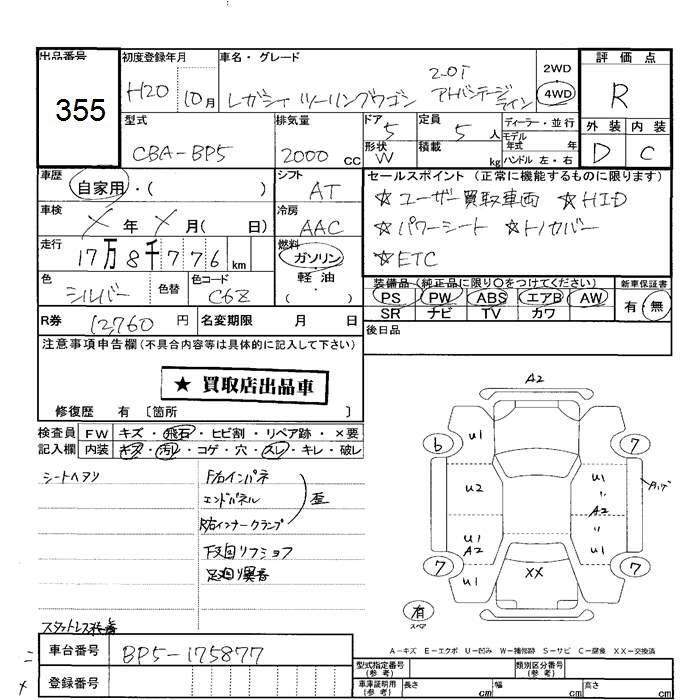 出品番号
355
初度登録年月
H20 10月
車名・グレード
レガシィ ツーリングワゴン 2.0i アドバンテージライン
2WD
4WD
評価点
R
外装 内装
D C
型式
CBA-BP5
排気量
2000 cc
ドア
5
形状
W
定員
5 人
積載
kg
ディーラー・並行
モデル年式 年
ハンドル 左・右
車歴
自家用・( )
シフト
AT
車検
× 年 × 月( 日)
冷房
AAC
走行
17万8千776 km
燃料
ガソリン
軽油
・( )
色
シルバー
色替
色コード
C6Z
セールスポイント(正常に機能するものに限ります)
☆ユーザー買取車両 ☆HID
☆パワーシート ☆トノカバー
☆ETC
装備品(純正品に限り○をつけてください)
PS PW ABS エアB AW
SR ナビ TV カワ
新車保証書
有・無
R券 12,760 円
名変期限 月 日
後日品
注意事項申告欄(不具合内容等は具体的に記入して下さい)
★ 買取店出品車
修復歴 有 〔箇所 〕
検査員記入欄
FW キズ・飛石・ヒビ割・リペア跡・×要
内装 キズ・汚れ・コゲ・穴・スレ・キレ・破レ
シートヘタリ
F右インパネ
エンドパネル
R右インナークランプ
歪
下回リフジョフ
足廻リ異音
スタットレス装着
A2
6
U1
7
U2
U1
〃
A2
〃
U1
Aハゲ
U1
A2
7
U1
XX
7
有
スペア
A-キズ E-エクボ U-凹み W-補修跡 S-サビ C-腐食 XX-交換済
車台番号
BP5-175877
登録番号
型式指定番号(参考)
類別区分番号(参考)
車庫証明用(参考)
長さ cm 幅 cm 高さ cm